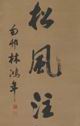 松風注
南邨林鴻年